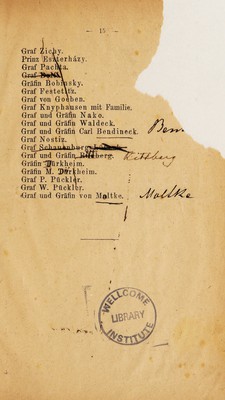 — 15 —
Graf Zichy.
Prinz Eszterházy.
Graf Pachta.
Graf
Gräfin Bobinsky.
Graf Festetits.
Graf von Goeben.
Graf Knyphausen mit Familie.
Graf und Gräfin Nako.
Graf und Gräfin Waldeck.
Graf und Gräfin Carl Bendineck.
Graf Nostiz.
Graf
Graf und Gräfin Rittberg. Rittberg
Gräfin Dürkheim.
Gräfin M. Dürkheim.
Graf P. Pückler.
Graf W. Pückler.
Graf und Gräfin von Moltke. Moltke
WELLCOME
LIBRARY
INSTITUTE